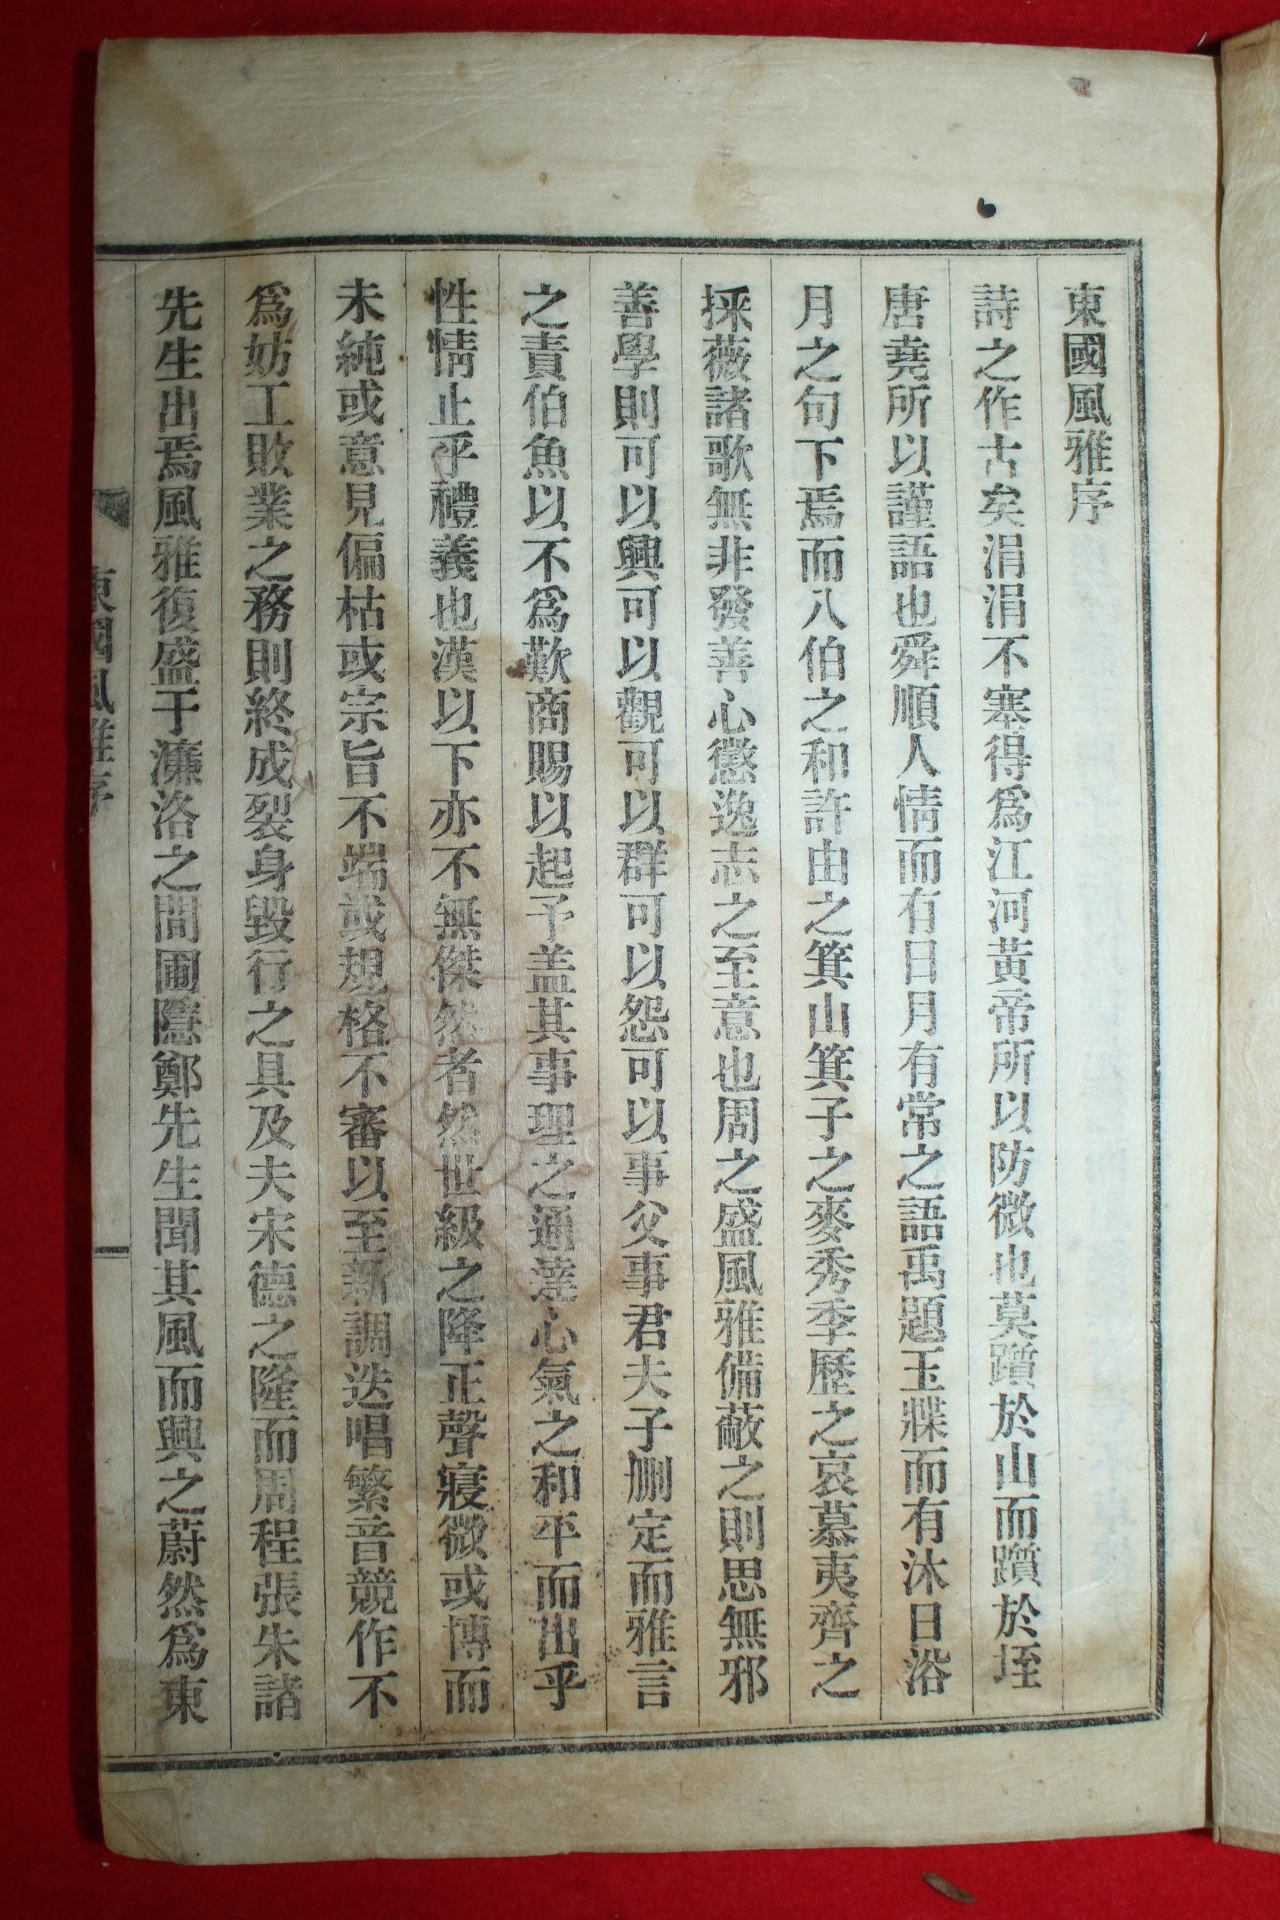 東國風雅序
詩之作古矣涓涓不塞得爲江河黃帝所以防微也莫躓於山而躓於垤
唐堯所以謹語也舜順人情而有日月有常之語禹題玉牒而有沐日浴
月之句下焉而八伯之和許由之箕山箕子之麥秀季歷之哀慕夷齊之
採薇諸歌無非發善心懲逸志之至意也周之盛風雅備蔽之則思無邪
善學則可以興可以觀可以群可以怨可以事父事君夫子刪定而雅言
之責伯魚以不爲歎商賜以起予盖其事理之通達心氣之和平而出乎
性情止乎禮義也漢以下亦不無傑然者然世級之降正聲寢微或博而
未純或意見偏枯或宗旨不端或規格不審以至新調迭唱繁音競作不
爲妨工敗業之務則終成裂身毀行之具及夫宋德之隆而周程張朱諸
先生出焉風雅復盛于濂洛之間圃隱鄭先生聞其風而興之蔚然爲東
東國風雅序 一